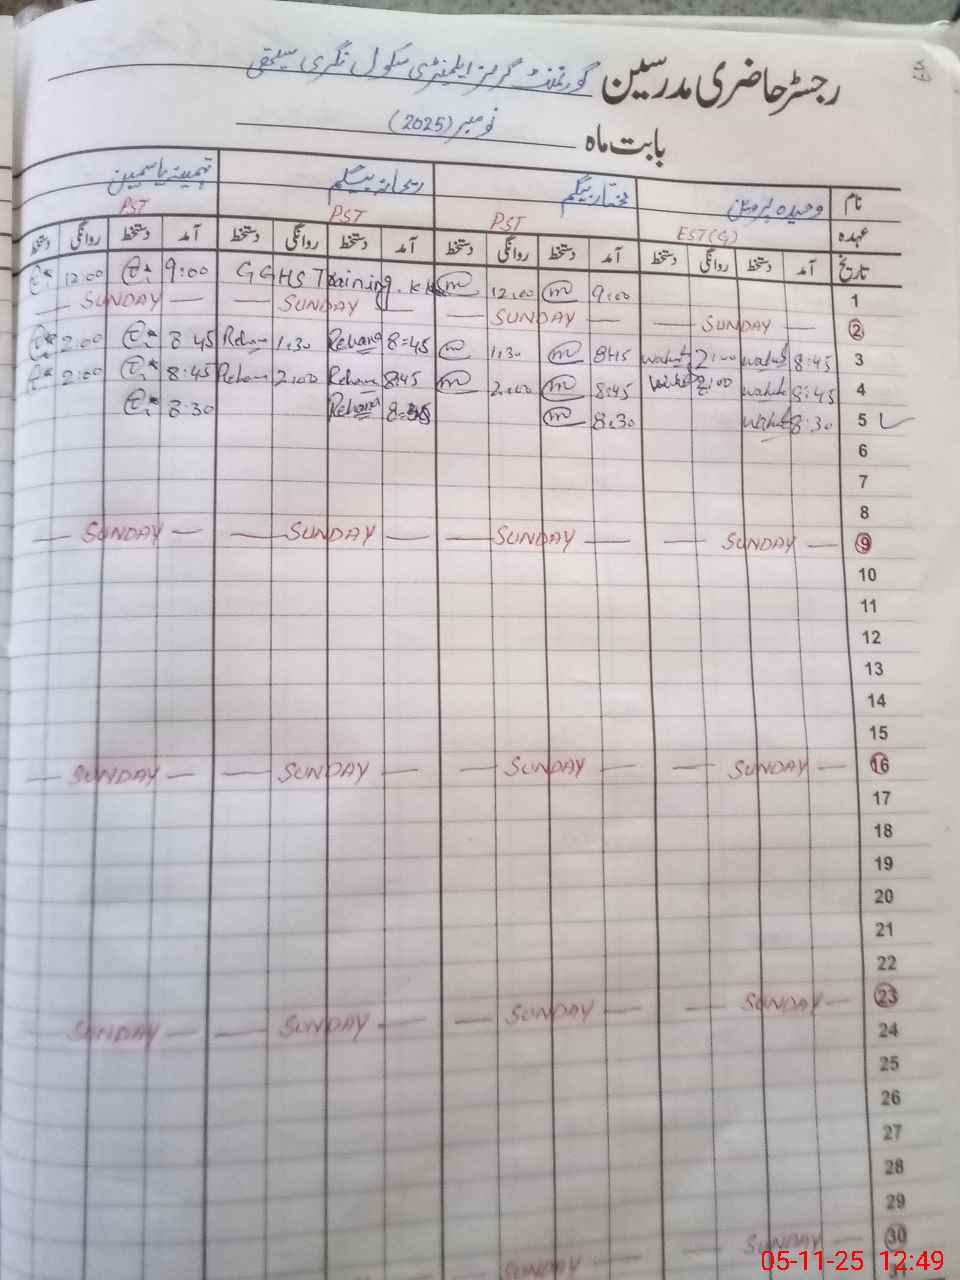 رجسٹر حاضری مدرسین گورنمنٹ گرلز ایلیمنٹری سکول نگری
بابت ماہ نومبر (2025)
نام وحیدہ پروین مختار بیگم ریحانہ بیگم تہمینہ یاسمین
عہدہ EST(G) PST PST PST
تاریخ آمد دستخط روانگی دستخط آمد دستخط روانگی دستخط آمد دستخط روانگی دستخط آمد دستخط روانگی دستخط
1 9:00 m 12:00 m GGHS Training 9:00 12:00
2 SUNDAY SUNDAY SUNDAY SUNDAY
3 8:45 wahid 2:00 8:45 m 1:30 m 8:45 Rehana 1:30 Rehana 8:45 2:00
4 8:45 wahid 2:00 8:45 m 2:00 m 8:45 Rehana 2:00 Rehana 8:45 2:00
5 8:30 wahid 8:30 m Rehana 8:30
6
7
8
9 SUNDAY SUNDAY SUNDAY SUNDAY
10
11
12
13
14
15
16 SUNDAY SUNDAY SUNDAY SUNDAY
17
18
19
20
21
22
23 SUNDAY SUNDAY SUNDAY SUNDAY
24
25
26
27
28
29
30 SUNDAY SUNDAY
05-11-25 12:49